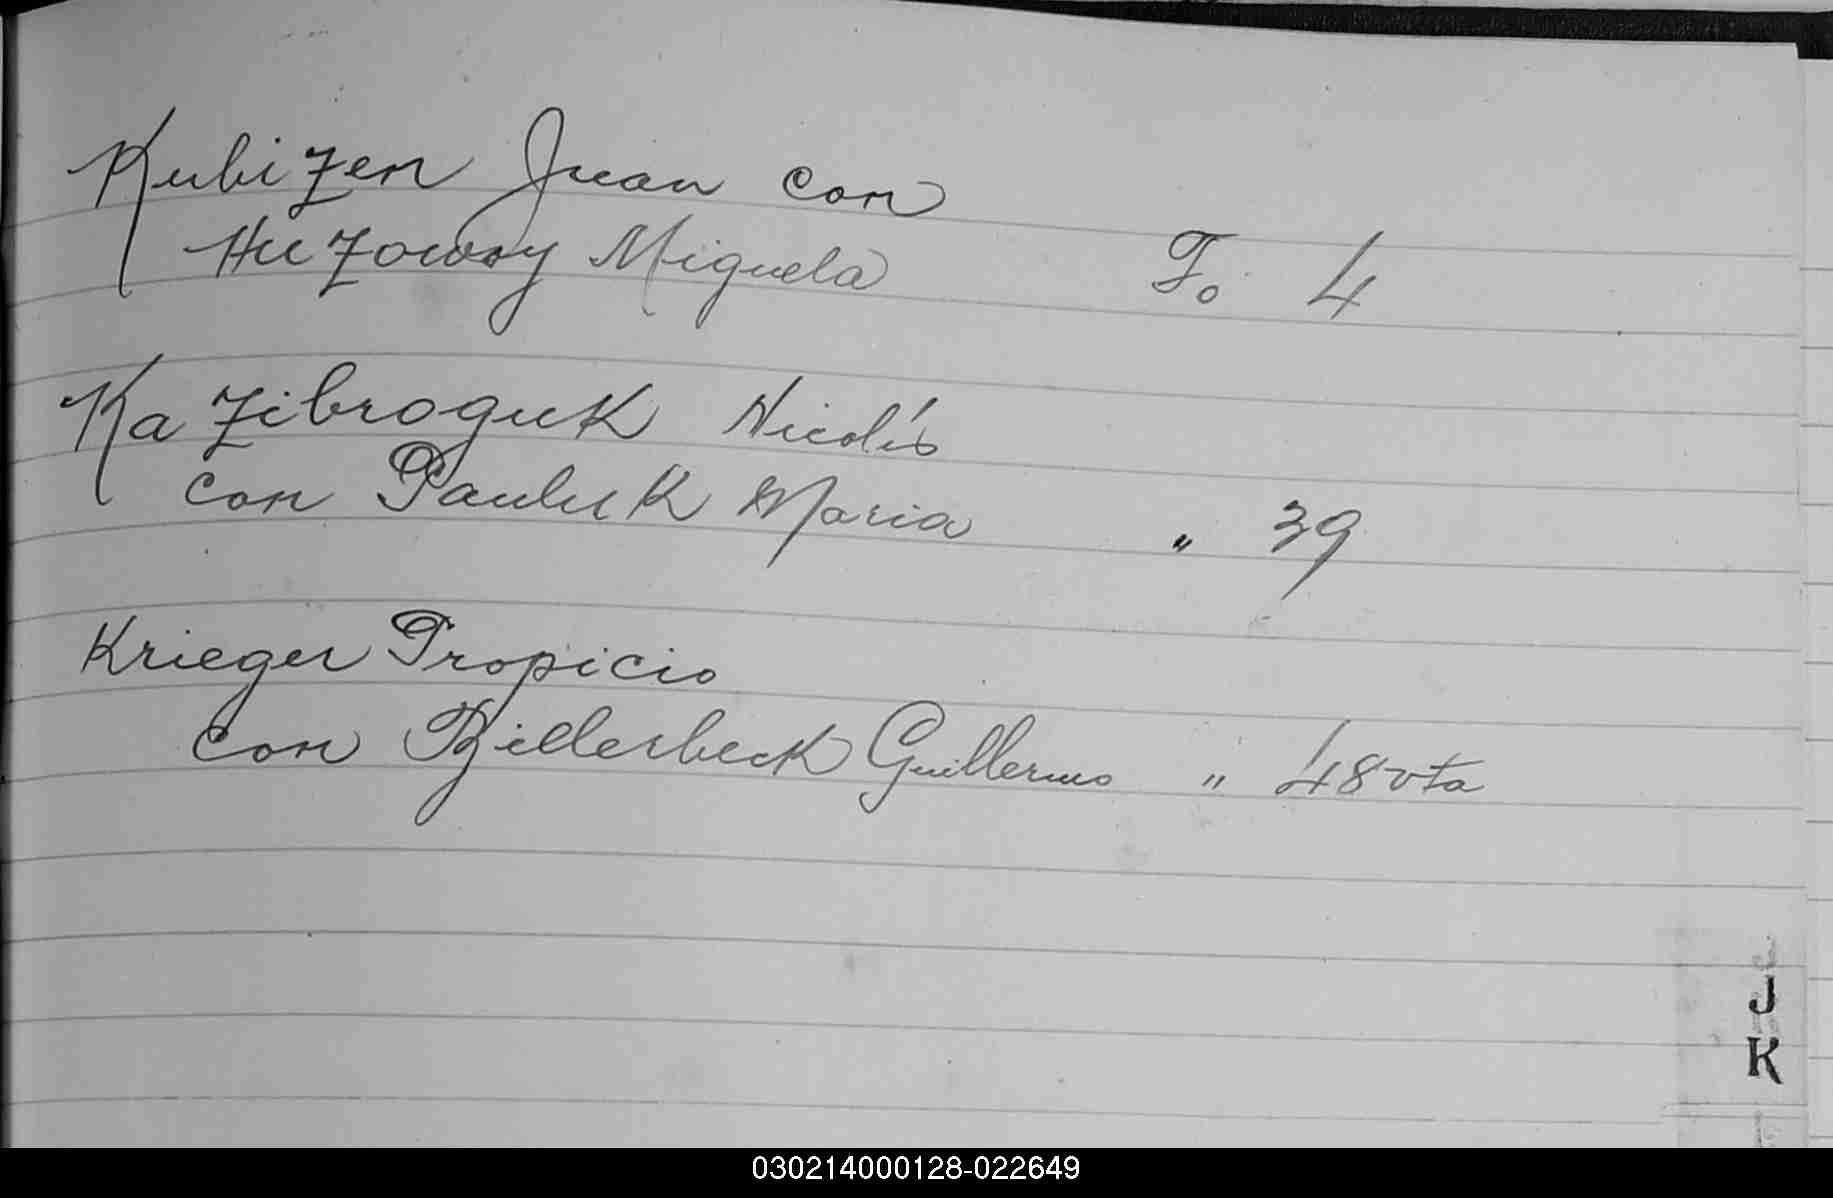 Kubizen Juan con
Huzowoy Miguela Fo 4
Kazibroguk Nicolás
con Pauluk Maria " 39
Krieger Propicio
con Billerbeck Guillermo " 48 vta
J
K
030214000128-022649